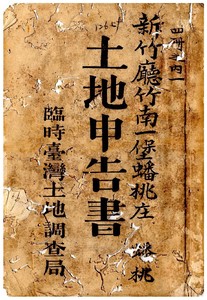 四冊ノ内一
新竹廳竹南一堡蟠桃庄
蟠桃
土地申告書
臨時臺灣土地調查局